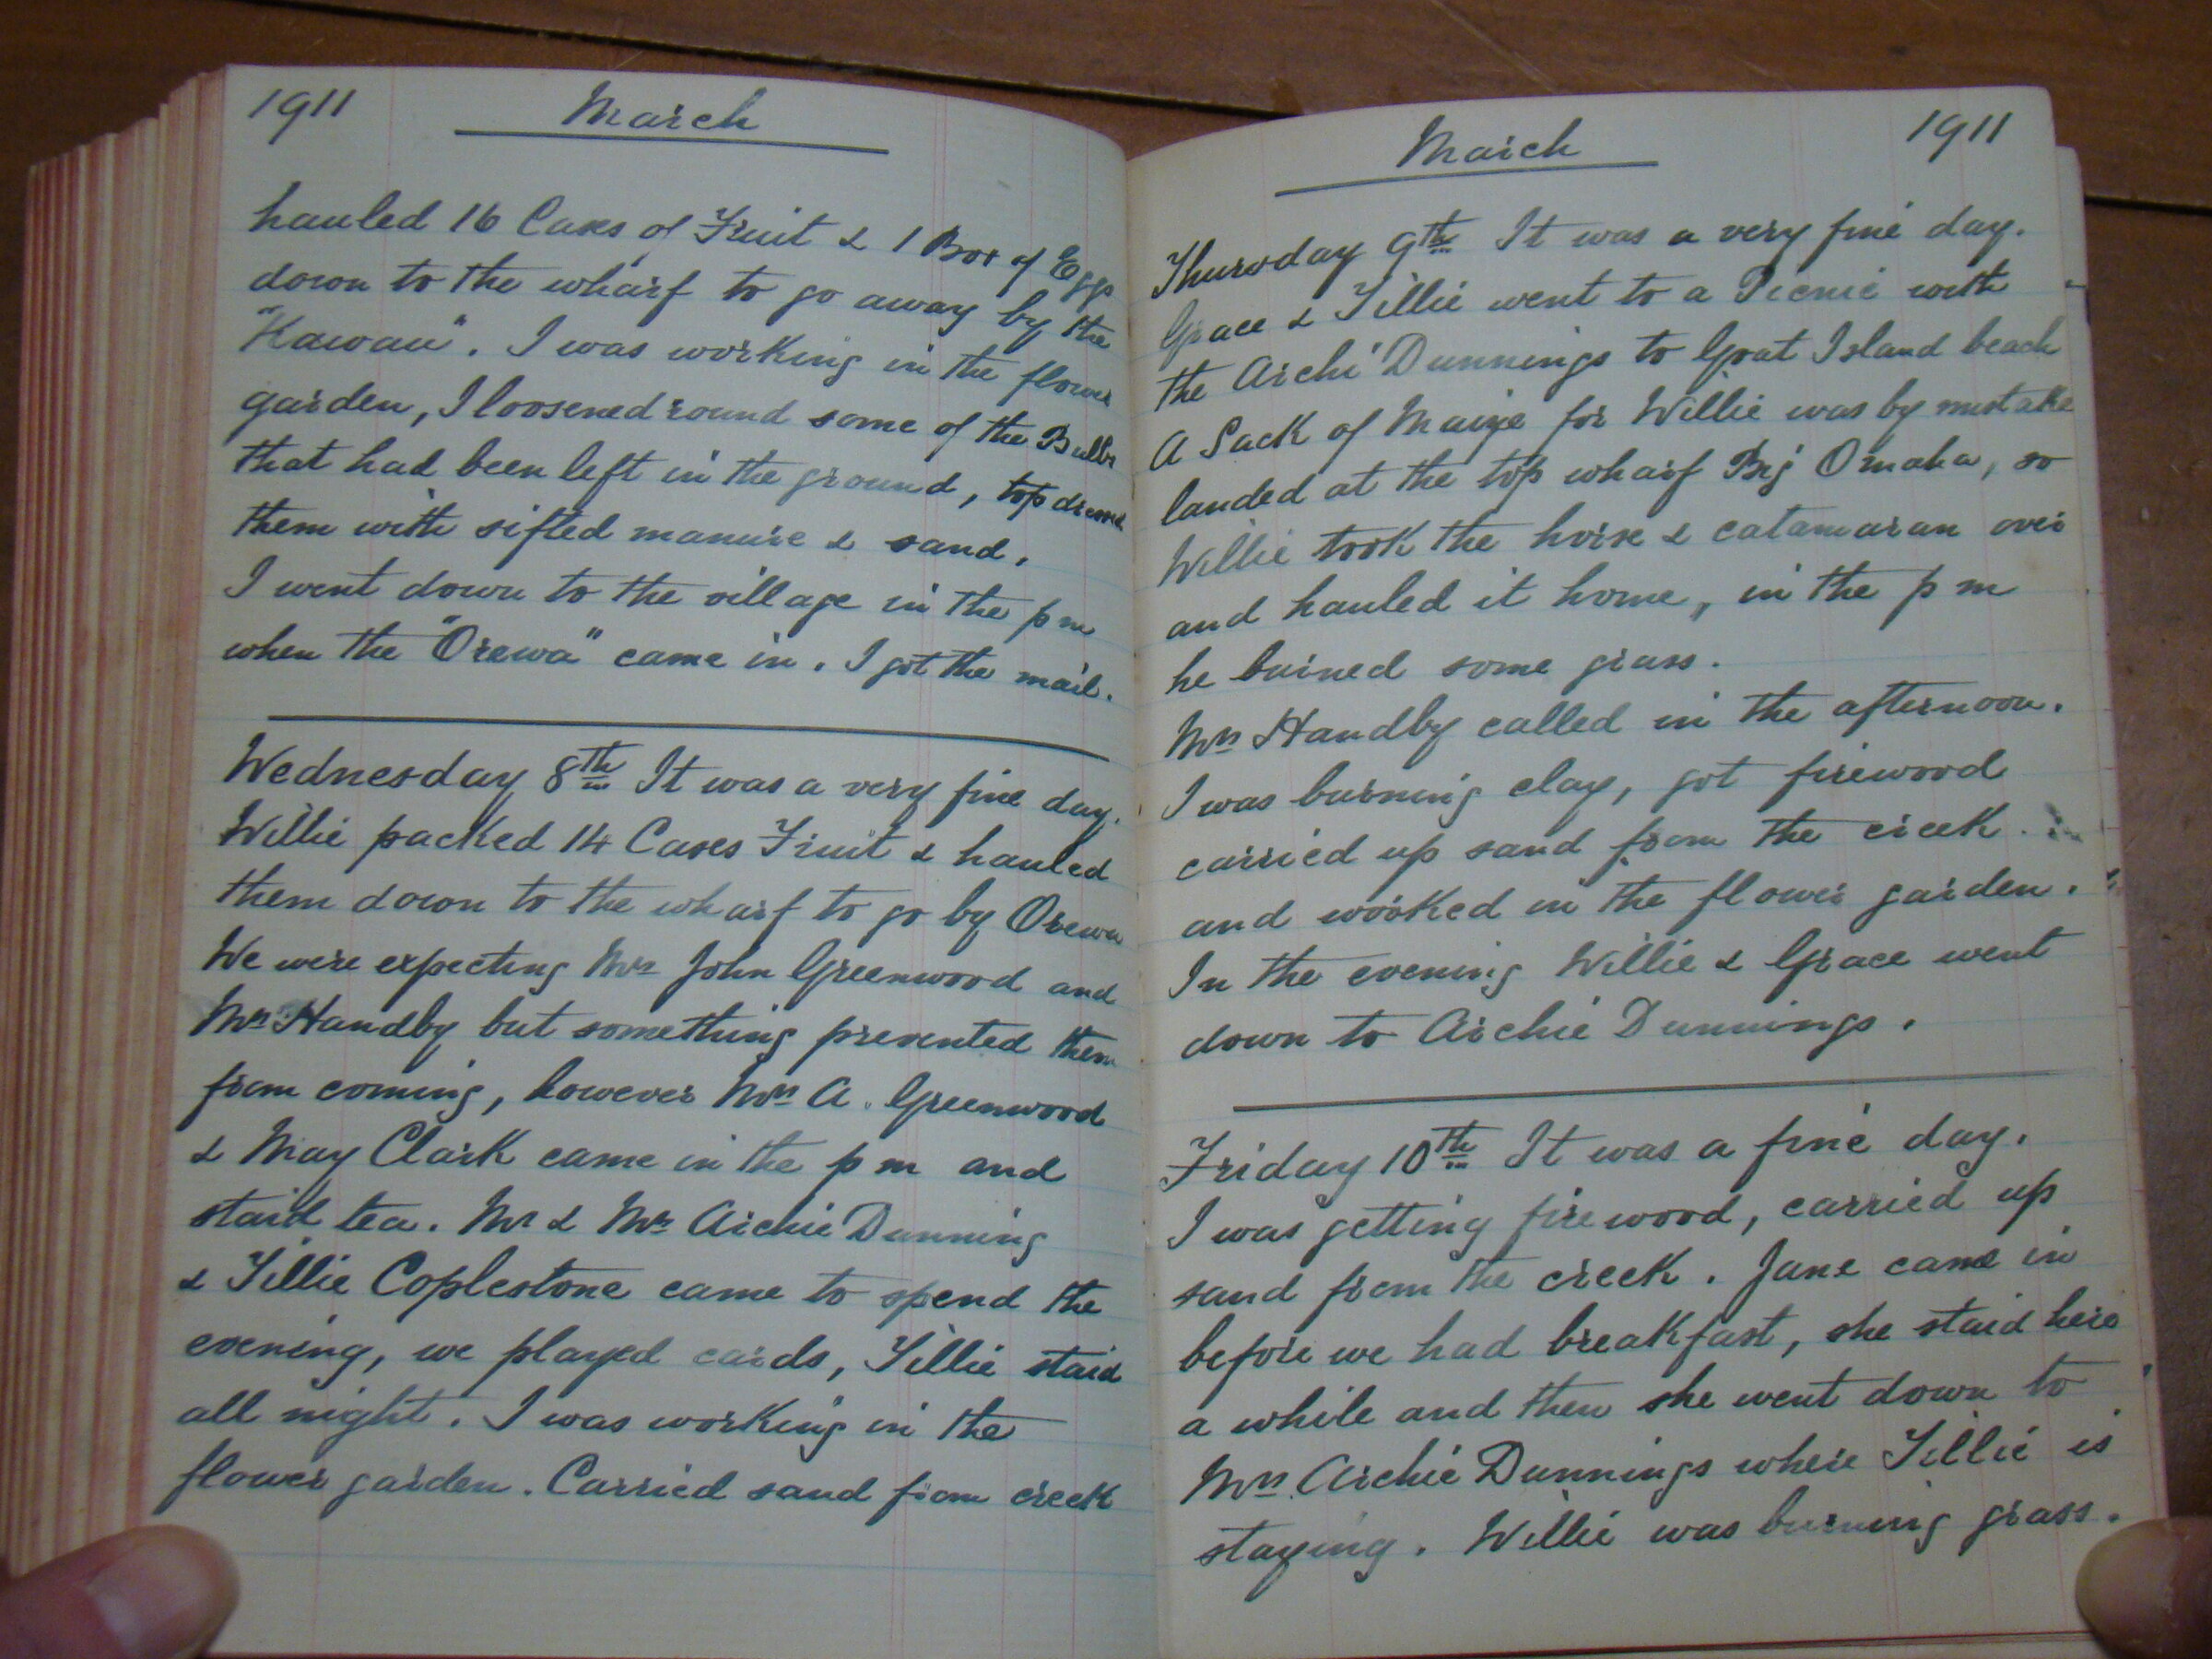 1911 March
hauled 16 Cases of Fruit & 1 Box of Eggs
down to the wharf to go away by the
"Kawau". I was working in the flower
garden, I loosened round some of the Bulbs
that had been left in the ground, top dressed
them with sifted manure & sand.
I went down to the village in the p m
when the "Orewa" came in. I got the mail.
Wednesday 8th It was a very fine day.
Willie packed 14 Cases Fruit & hauled
them down to the wharf to go by Orewa
We were expecting Mrs John Greenwood and
Mrs Handby but something prevented them
from coming, however Mrs A. Greenwood
& May Clark came in the p m and
staid tea. Mr & Mrs Archie Dunning
& Tillie Coplestone came to spend the
evening, we played cards, Tillie staid
all night. I was working in the
flower garden. Carried sand from creek
March 1911
Thursday 9th It was a very fine day.
Grace & Tillie went to a Picnic with
the Archie Dunnings to Goat Island beach
A Sack of Maize for Willie was by mistake
landed at the top wharf Big Omaha, so
Willie took the horse & catamaran over
and hauled it home, in the p m
he burned some grass.
Mrs Handby called in the afternoon.
I was burning clay, got firewood
carried up sand from the creek.
and worked in the flower garden.
In the evening Willie & Grace went
down to Archie Dunnings.
Friday 10th It was a fine day.
I was getting firewood, carried up
sand from the creek. Jane came in
before we had breakfast, she staid here
a while and then she went down to
Mrs Archie Dunnings where Tillie is
staying. Willie was burning grass.